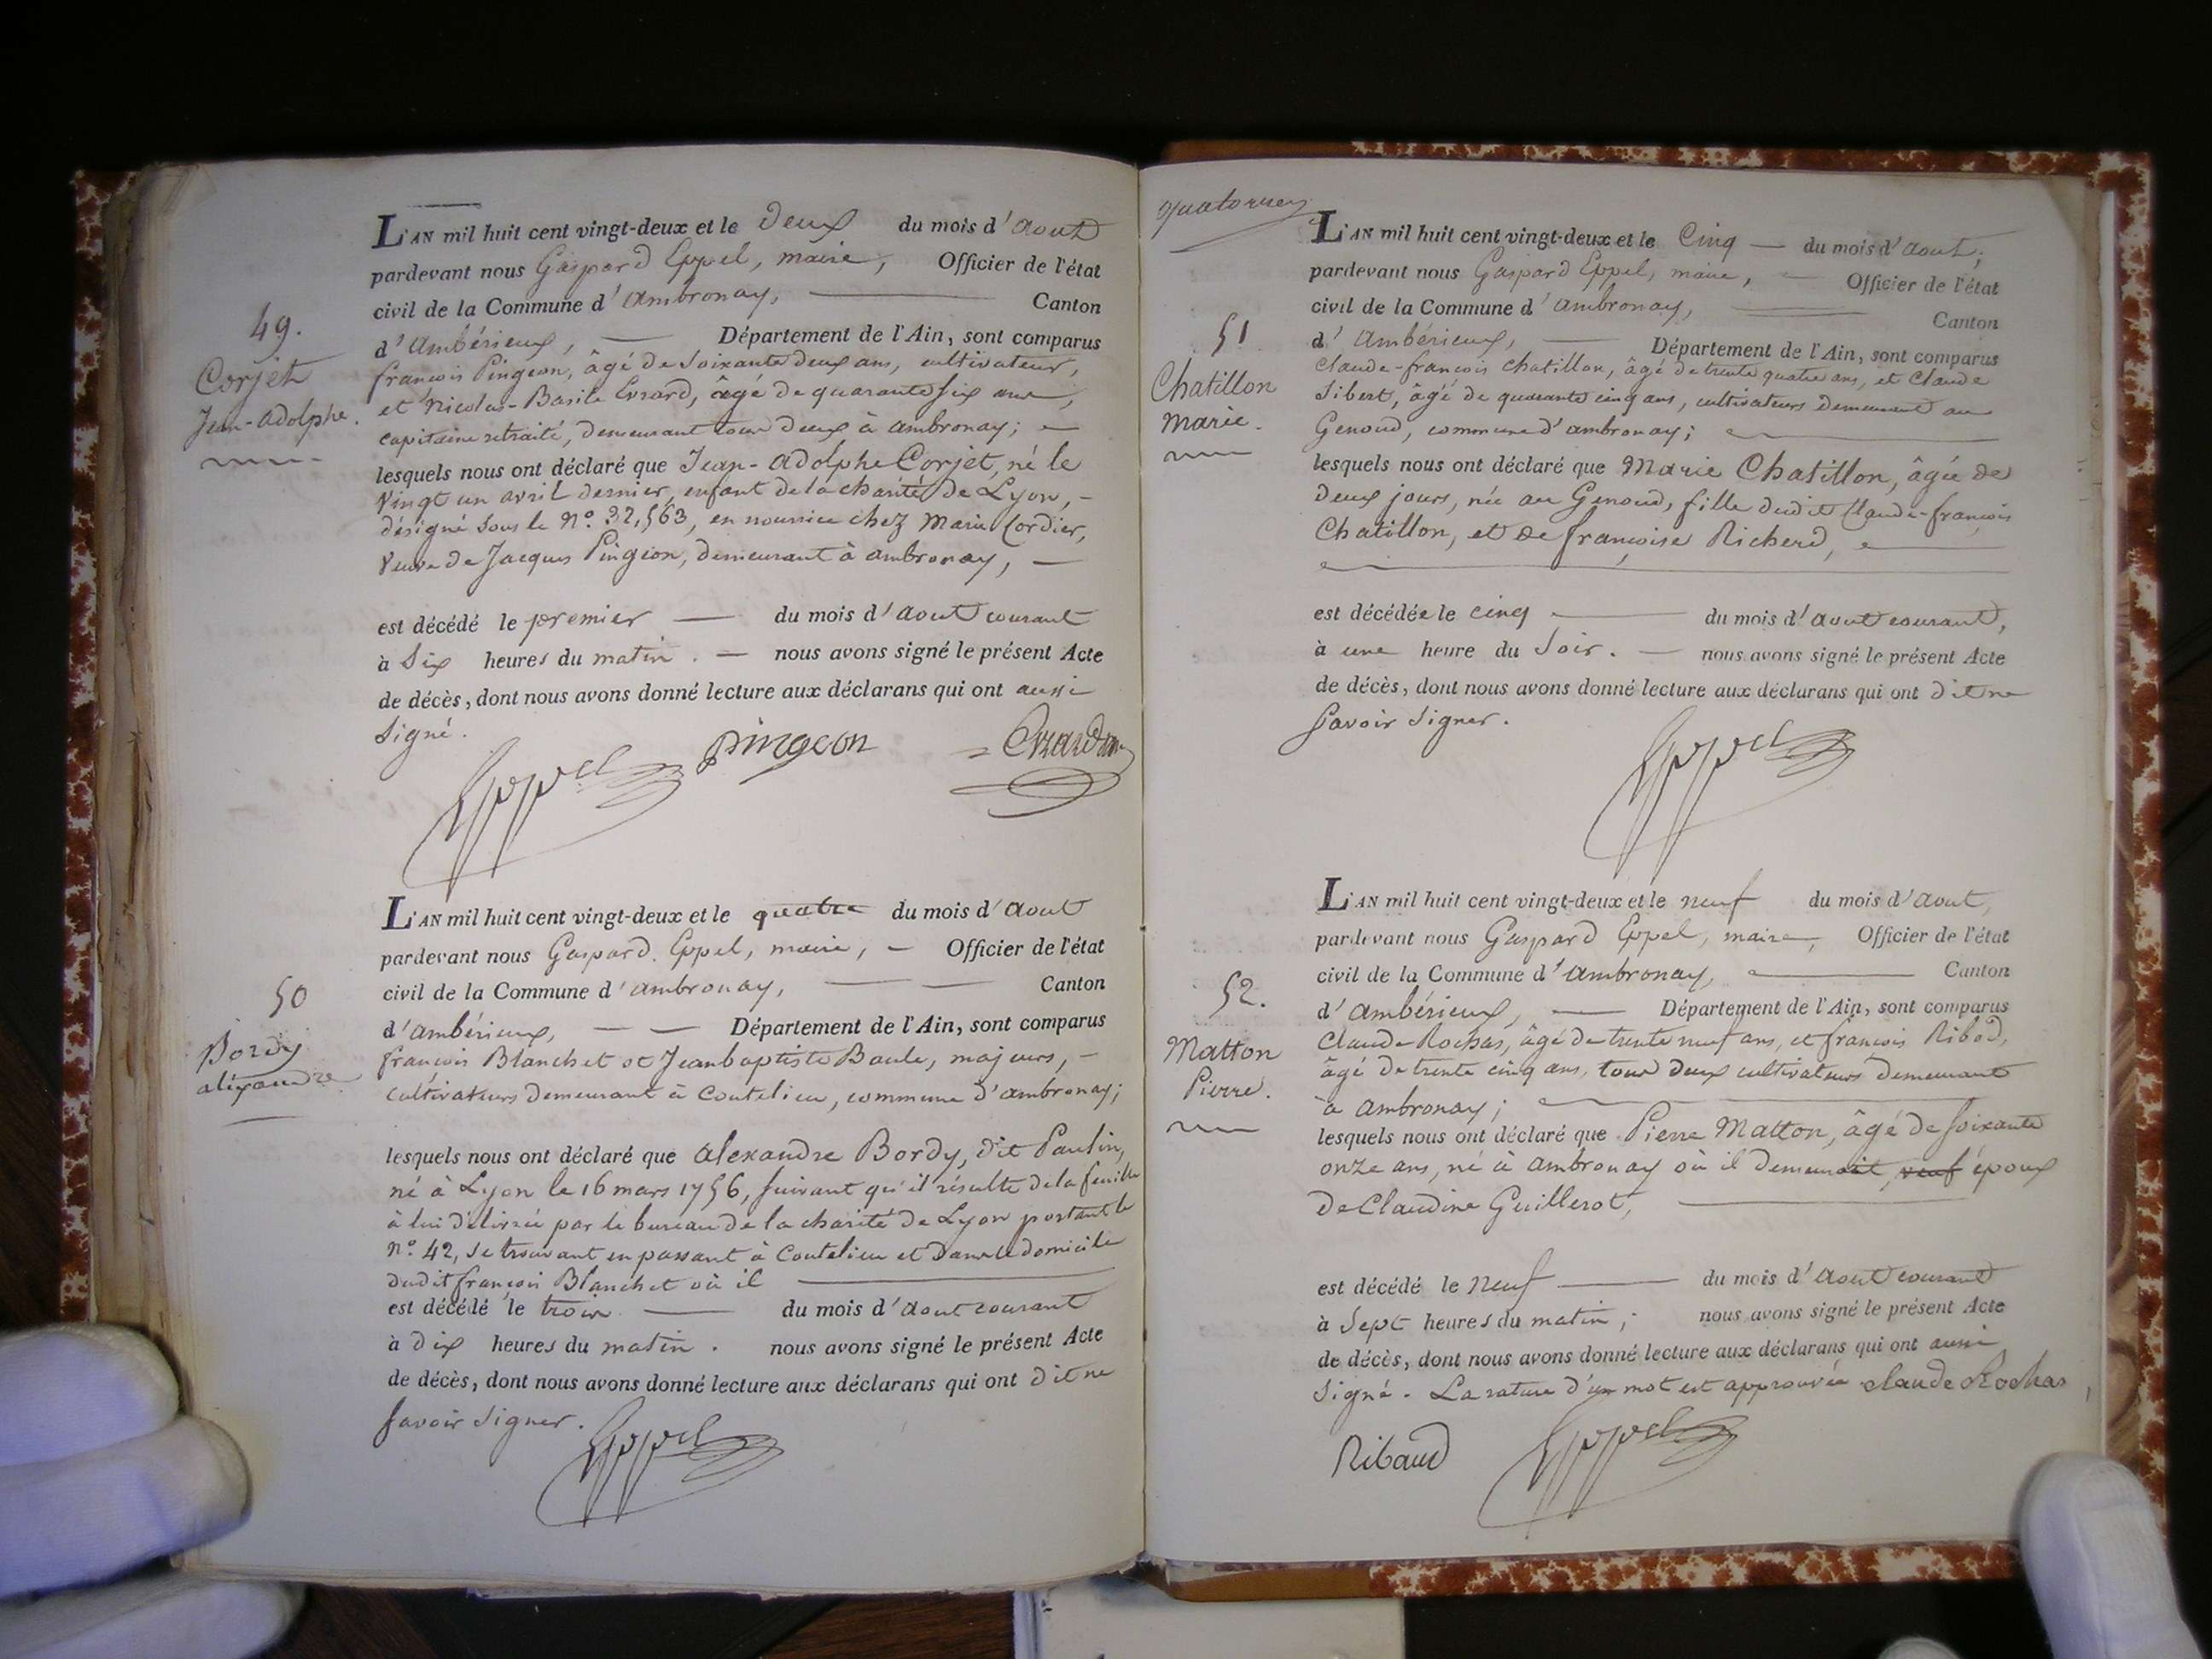 L'AN mil huit cent vingt-deux et le deux du mois d'aout
pardevant nous Gaspard Eppel, maire, Officier de l'état
civil de la Commune d'ambronay, Canton
d'ambérieux, Département de l'Ain, sont comparus
françois Pingeon, âgé de soixante deux ans, cultivateur,
et Nicolas-Basile Evrard, âgé de quarante six ans,
capitaine retraité, demeurant tous deux à ambronay;
lesquels nous ont déclaré que Jean-adolphe Corjet, né le
vingt un avril dernier, enfant de la charité de Lyon,
désigné sous le N.º 32,563, en nourrice chez Marie Cordier,
veuve de Jacques Pingeon, demeurant à ambronay,
est décédé le premier du mois d'aout courant
à six heures du matin. nous avons signé le présent Acte
de décès, dont nous avons donné lecture aux déclarans qui ont aussi
signé.
Eppel pingeon Evrard
49.
Corjet
Jean-adolphe.
L'AN mil huit cent vingt-deux et le quatre du mois d'aout
pardevant nous Gaspard Eppel, maire, Officier de l'état
civil de la Commune d'ambronay, Canton
d'ambérieux, Département de l'Ain, sont comparus
françois Blanchet et Jean baptiste Baule, majeurs,
cultivateurs demeurant à Coutelieu, commune d'ambronay;
lesquels nous ont déclaré que alexandre Bordy, dit Paulin,
né à Lyon le 16 mars 1756, suivant qu'il résulte de la feuille
à lui délivrée par le bureau de la charité de Lyon portant le
nº. 42, se trouvant en passant à Coutelieu et dans le domicile
dudit françois Blanchet où il
est décédé le trois du mois d'aout courant
à dix heures du matin. nous avons signé le présent Acte
de décès, dont nous avons donné lecture aux déclarans qui ont dit ne
savoir signer.
Eppel
50
Bordy
alexandre
quatorze
L'AN mil huit cent vingt-deux et le cinq du mois d'aout,
pardevant nous Gaspard Eppel, maire, Officier de l'état
civil de la Commune d'ambronay, Canton
d'ambérieux, Département de l'Ain, sont comparus
claude-françois chatillon, âgé de trente quatre ans, et claude
Sibert, âgé de quarante cinq ans, cultivateurs demeurant au
Genoud, commune d'ambronay;
lesquels nous ont déclaré que Marie Chatillon, âgée de
deux jours, née au Genoud, fille dudit Claude-françois
Chatillon, et de françoise Richerd,
est décédée le cinq du mois d'aout courant,
à une heure du soir. nous avons signé le présent Acte
de décès, dont nous avons donné lecture aux déclarans qui ont dit ne
savoir signer.
Eppel
51
Chatillon
Marie.
L'AN mil huit cent vingt-deux et le neuf du mois d'aout,
pardevant nous Gaspard Eppel, maire, Officier de l'état
civil de la Commune d'ambronay, Canton
d'ambérieux, Département de l'Ain, sont comparus
Claude Rochas, âgé de trente neuf ans, et françois Ribod,
âgé de trente cinq ans, tous deux cultivateurs demeurant
à ambronay;
lesquels nous ont déclaré que Pierre Matton, âgé de soixante
onze ans, né à ambronay où il demeurait, veuf époux
de Claudine Guillerot,
est décédé le neuf du mois d'aout courant
à sept heures du matin; nous avons signé le présent Acte
de décès, dont nous avons donné lecture aux déclarans qui ont aussi
signé. La rature d'un mot est approuvée claude Rochas
Ribaud Eppel
52.
Matton
Pierre.